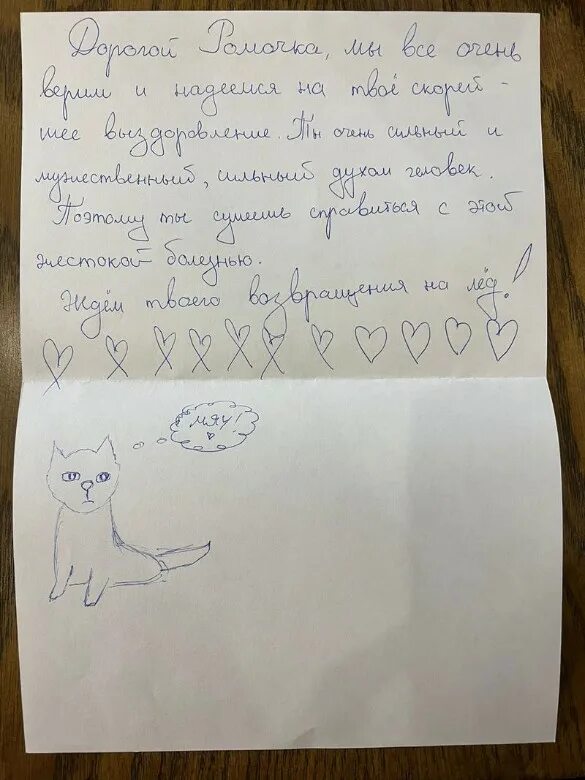 Дорогой Ромочка, мы все очень
верим и надеемся на твоё скорей-
шее выздоровление. Ты очень сильный и
мужественный, сильный духом человек.
Поэтому ты сумеешь справиться с этой
жестокой болезнью.
Ждём твоего возвращения на лёд!
мяу!